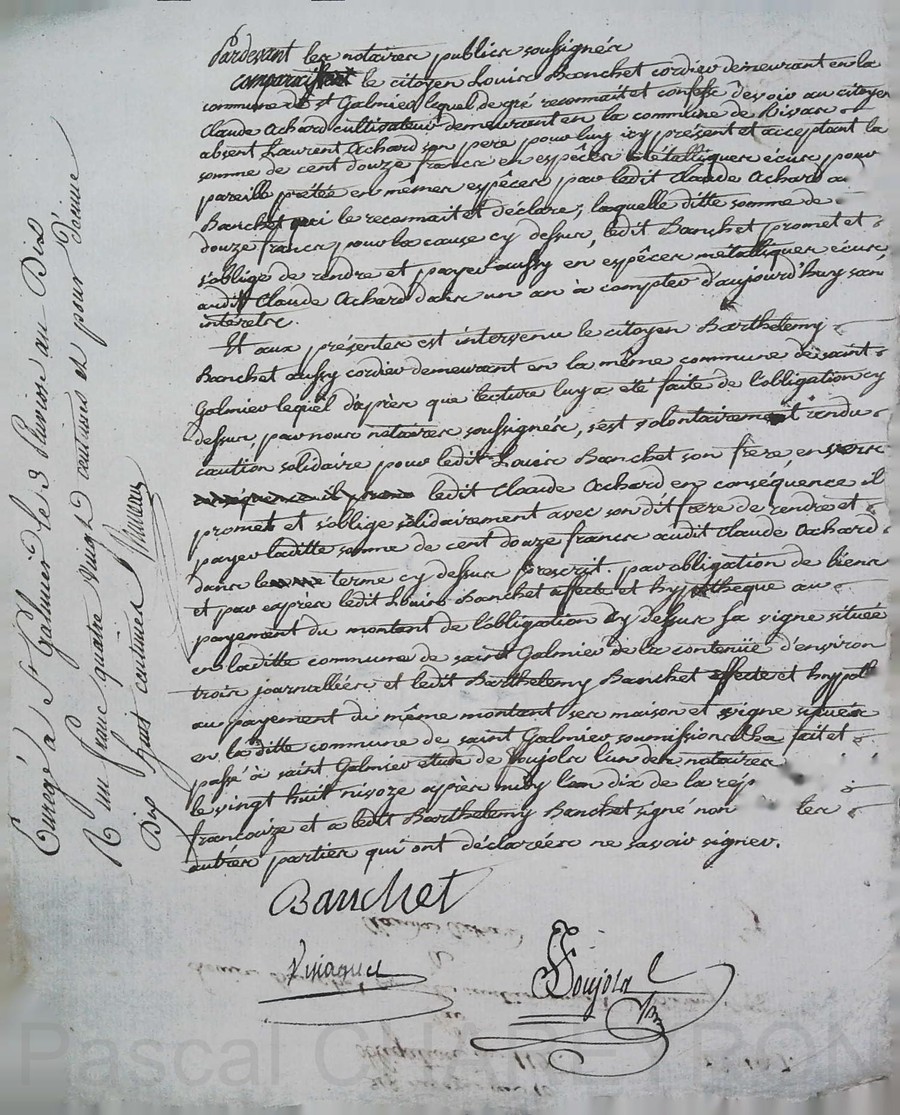 Pardevant les notaires publics soussignés
comparaissant le citoyen Louis Banchet cordier demeurant en la
commune de St Galmier lequel de gré reconnait et confesse devoir au citoyen
Claude Achard cultivateur demeurant en la commune de Rivas
absent Laurent Achard son pere pour luy icy présent et acceptant la
somme de cent douze francs en espèces métalliques écus, pour
pareille prêtée en mêmes espèces par ledit Claude Achard au
Banchet qui le reconnait et déclare; laquelle ditte somme de
douze francs, pour la cause cy dessus, ledit Banchet promet et
s'oblige de rendre et payer aussy en espèces métalliques écus,
audit Claude Achard dans un an à compter d'aujourd'huy sans
intérêts.
Et aux présentes est intervenu le citoyen Barthelemy
Banchet aussy cordier demeurant en la même commune de saint
Galmier lequel d'après que lecture luy a été faite de l'obligation cy
dessus, par nous notaires soussignés, s'est volontairement rendu
caution solidaire pour ledit Louis Banchet son frère, envers
ledit Claude Achard en conséquence il
promet et s'oblige solidairement avec son dit frere de rendre et
payer laditte somme de cent douze francs audit Claude Achard
dans le terme cy dessus prescrit. par obligation de biens
et par exprès ledit Louis Banchet affecte et hypothèque au
payement du montant de l'obligation cy dessus sa vigne située
en laditte commune de saint Galmier de la contenüe d'environ
trois journallées, et ledit Barthelemy Banchet affecte et hypot
au payement du même montant ses maison et vigne situées
en la ditte commune de saint Galmier soumissions &ca fait et
passé à saint Galmier etude de Soujols l'un des notaires
le vingt huit nivoze après midy l'an dix de la rép
françoize et a ledit Barthelemy Banchet signé non les
autres parties qui ont déclarées ne savoir signer.
Banchet
Soujols
Enregé à St Galmier le 3 Pluviose an Dix
R un franc quatre vingt centimes et pour
Dix huit centimes
Pascal CHAMBEYRON